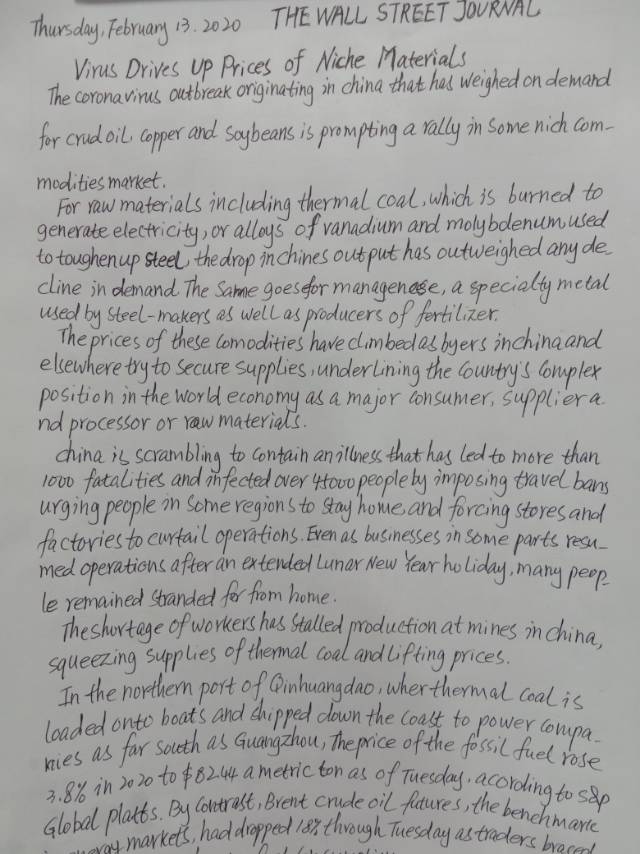 Thursday, February 13. 2020 THE WALL STREET JOURNAL
Virus Drives Up Prices of Niche Materials
The coronavirus outbreak originating in china that has weighed on demand
for crud oil, copper and soybeans is prompting a rally in some nich com-
modities market.
For raw materials including thermal coal, which is burned to
generate electricity, or alloys of vanadium and molybdenum, used
to toughen up steel, the drop in chines output has outweighed any de-
cline in demand The same goes for managenese, a specialty metal
used by steel-makers as well as producers of fertilizer.
The prices of these comodities have climbed as byers in china and
elsewhere try to secure supplies, underlining the country's complex
position in the world economy as a major consumer, supplier a
nd processor or raw materials.
china is scrambling to contain an illness that has led to more than
1000 fatalities and infected over 44000 people by imposing travel bans
urging people in some regions to stay home, and forcing stores and
factories to curtail operations. Even as businesses in some parts resu-
med operations after an extended Lunar New Year holiday, many peop-
le remained stranded far from home.
The shortage of workers has stalled production at mines in china,
squeezing supplies of thermal coal and lifting prices.
In the northern port of Qinhuangdao, wher thermal coal is
loaded onto boats and shipped down the coast to power compa-
nies as far south as Guangzhou, The price of the fossil fuel rose
3.8% in 2020 to $82.44 a metric ton as of Tuesday, acording to s&p
Global platts. By contrast, Brent crude oil futures, the benchmark
markets, had dropped 18% through Tuesday as traders braced